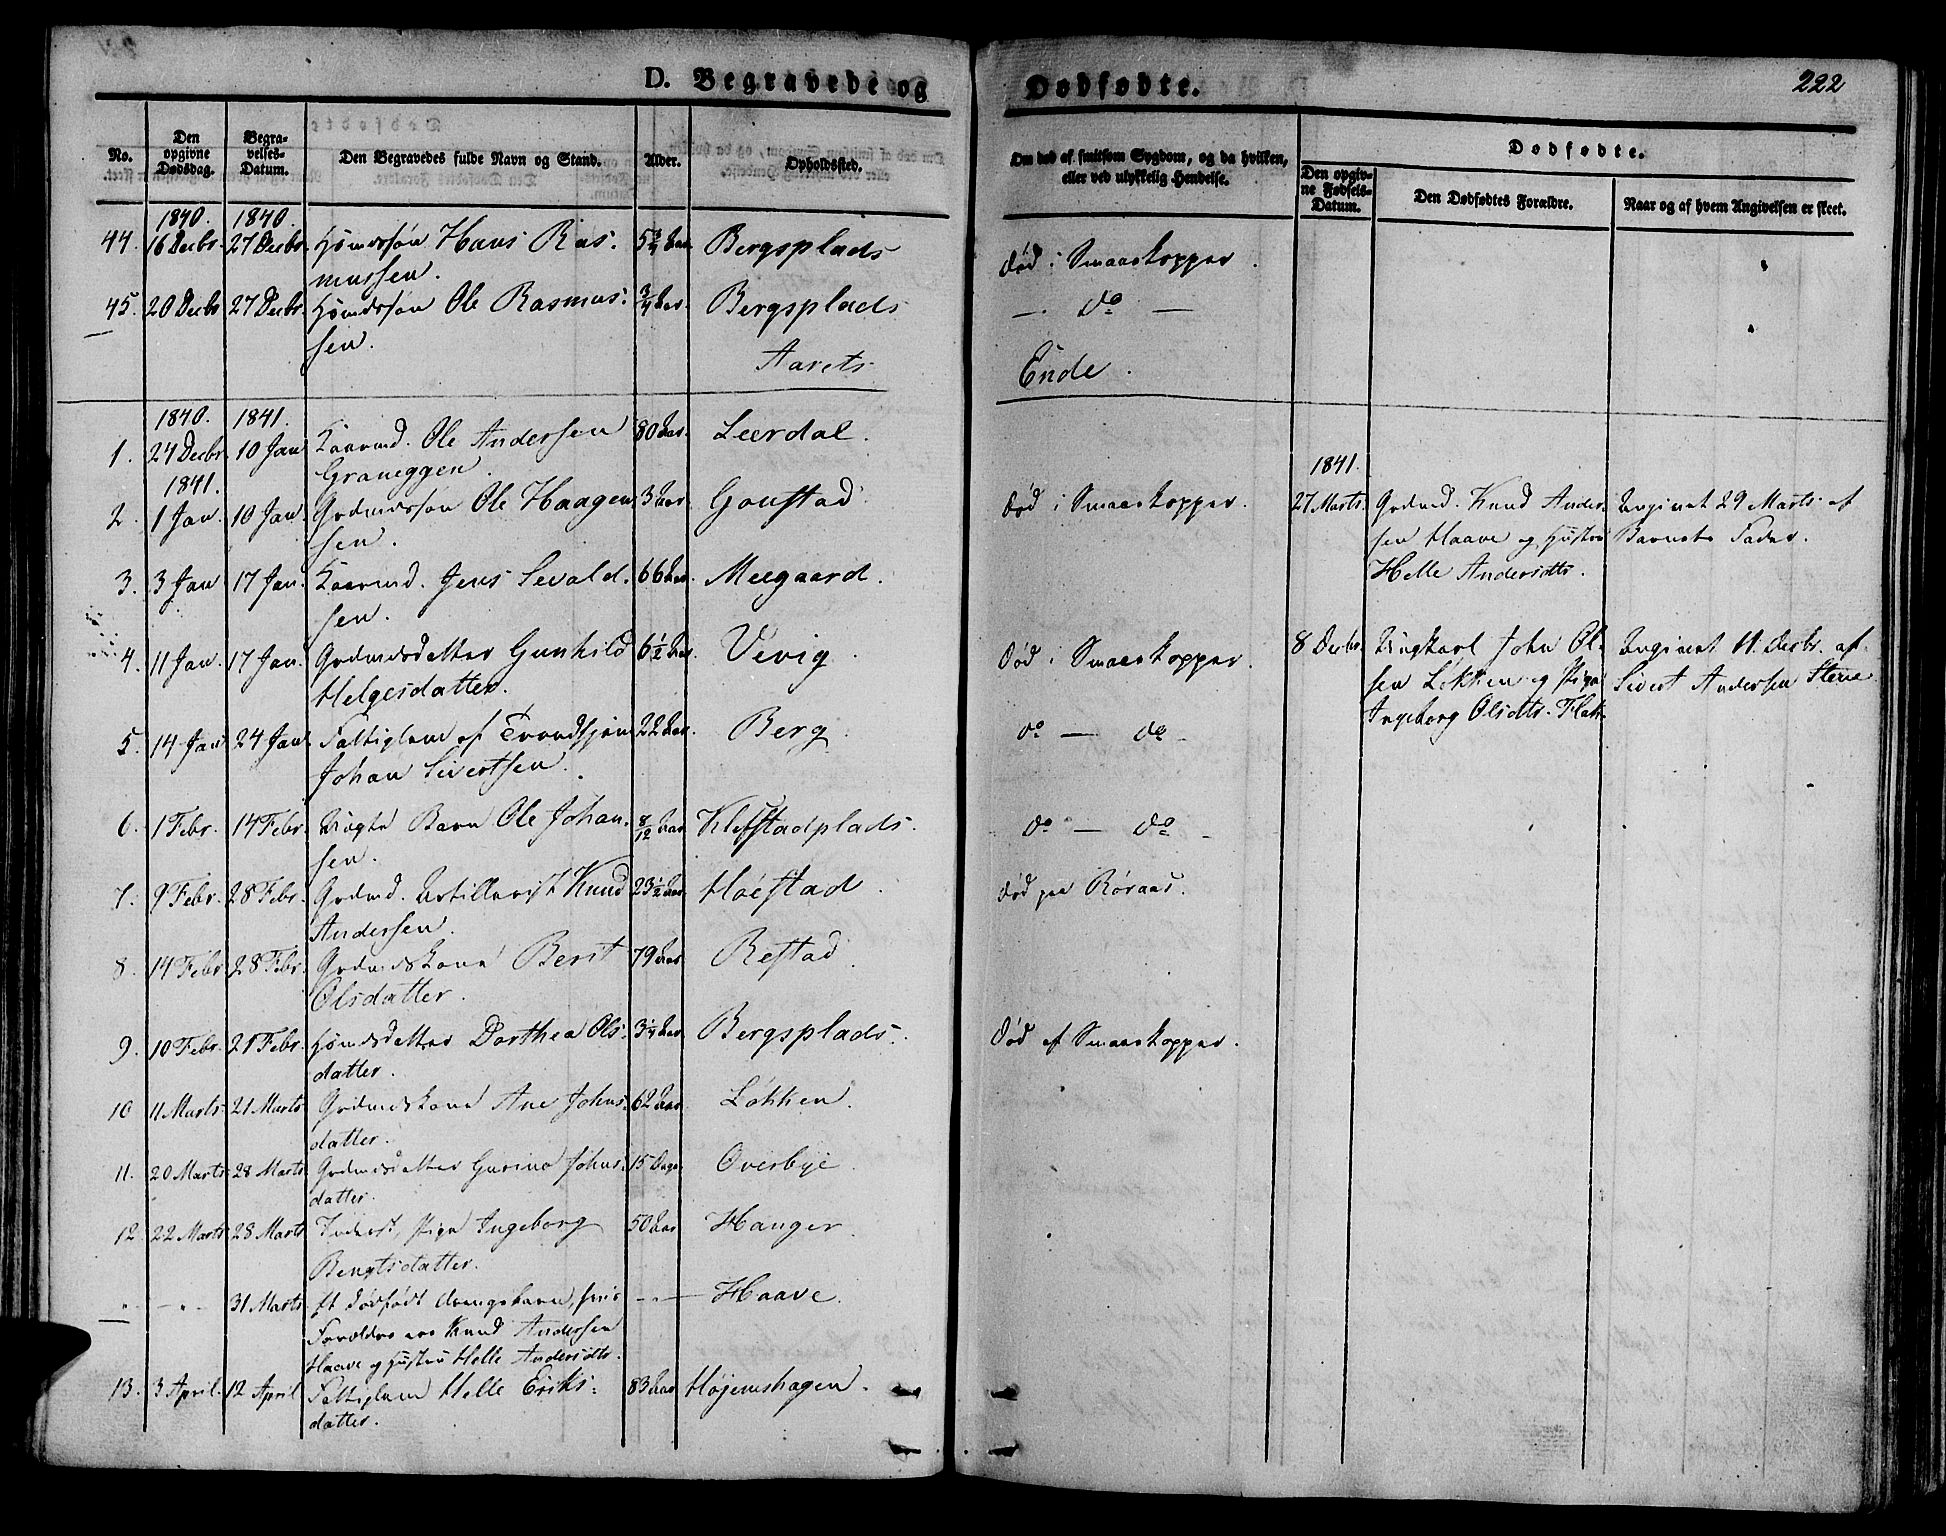 D. Begravede og
Dødfødte.
222
No.
Den opgivne Dødsdag.
Begravelses-Datum.
Den Begravedes fulde Navn og Stand.
Alder.
Opholdssted.
Om død af smitsom Sygdom, og da hvilken, eller ved ulykkelig Hendelse.
Dødfødte.
Den opgivne Fødsels-Datum.
Den Dødfødtes Forældre.
Naar og af hvem Angivelsen er skeet.
1840. 1840.
44. 16 Decbr. 27 Decbr. Huusmdssøn Hans Ras- 5 3/4 Aar Bergsplads død i Smaaekopper.
mussen.
45. 20 Decbr 27 Decbr. Huusmdssøn Ole Rasmus- 3/4 Aar. Bergsplads —. do —
sen.
Aarets Ende.
1840. 1841.
1. 24 Decbr. 10 Jan Kaarmd. Ole Andersen 80 Aar. Leerdal.
Graneggen.
1841. 1841.
2. 1 Jan. 10 Jan. Grdmdssøn Ole Haagen- 3 Aar Gonstad død i Smaaekopper. 27 Marts. Grdmd. Knud Ander- Angivet 29 Marts af
sen. sen Haave og Hustru Barnets Fader.
Helle Andersdtr.
3. 3 Jan 17 Jan. Kaarmd. Jens Sivald- 66 Aar. Meegaard.
sen.
4. 11 Jan. 17 Jan. Grdmdsdatter Gunhild 6 1/2 Aar. Vevig. død i Smaaekopper. 8 Decbr. Ungkarl John Ol- Angivet 11 Decbr. af
Helgesdatter. sen Løkken og Pige Sivert Andersen Stene
Ingeborg Olsdtr.
5. 14 Jan 24 Jan. Fattiglem af Trondhjem 22 Aar. Berg. do — do
Johan Sivertsen.
6. 1 Febr. 14 Febr. Uægte Barn Ole Johan- 8/12 Aar Klefstadplads. do — do
sen.
7. 9 Febr. 28 Febr. Grdmd. Artillerist Knud 23 1/2 Aar. Høiestad. død paa Røraas.
Andersen.
8. 14 Febr 28 Febr. Grdmdskone Berit 79 Aar. Restad.
Olsdatter.
9. 10 Febr. 21 Febr. Huusmdsdatter Dorthea Ols- 3 1/4 Aar. Bergsplads. død af Smaaekopper.
datter.
10 11 Marts 21 Marts Grdmdskone Ane Johns- 62 Aar. Løkken.
datter.
11. 20 Marts 28 Marts Grdmdsdatter Gurine Johns- 15 Dage Overbye.
datter.
12. 22 Marts 28 Marts Inderst, Pige Ingeborg 50 Aar Hanger.
Bengtsdatter.
31 Marts Et dødfødt Drengebarn, hvis — Haave.
Forældre ere Knud Andersen
Haave og Hustru Helle Andersdtr.
13. 3 April. 12 April Fattiglem Helle Eriks- 83 Aar Højemshagen.
datter.